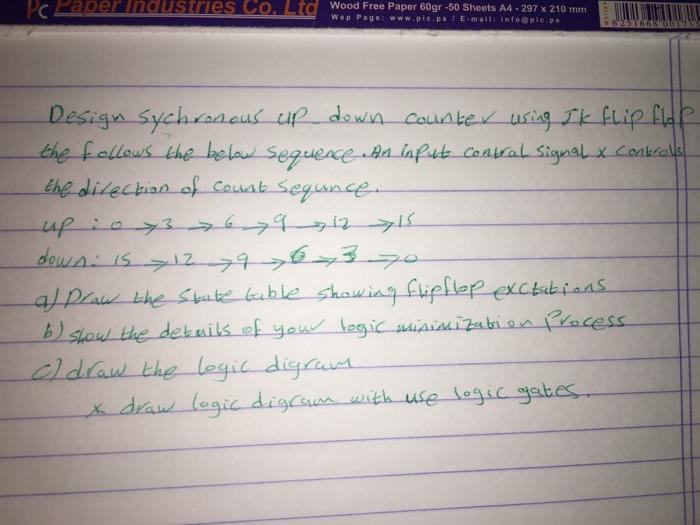 PC Paper Industries Co. Ltd
Wood Free Paper 60gr -50 Sheets A4 - 297 x 210 mm
Wep Page: www.pic.ps / E-mail: info@pic.ps
Design sychronous up_down counter using Jk flip flop
the follows the below sequence. An input contral signal x controls
the direction of count sequnce.
up : 0 → 3 → 6 → 9 → 12 → 15
down: 15 → 12 → 9 → 6 → 3 → 0
a) Draw the State table showing flipflop exctations
b) show the details of your logic minimization Process
c) draw the logic digram
x draw logic digram with use logic gates.